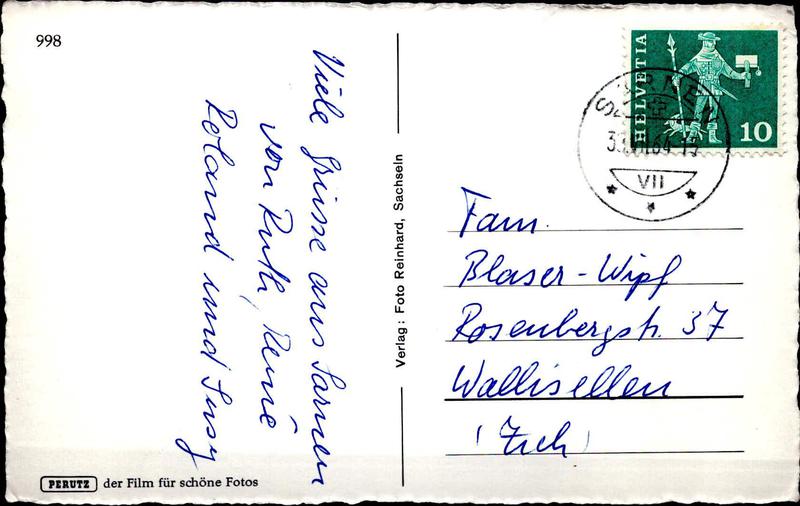 998
Viele Grüsse aus Sarnen
von Ruth, René
Roland und Susy
PERUTZ der Film für schöne Fotos
Verlag: Foto Reinhard, Sachseln
HELVETIA
10
SARNEN
VII
Fam.
Blaser-Wipf
Rosenbergstr. 37
Wallisellen
(Zch)